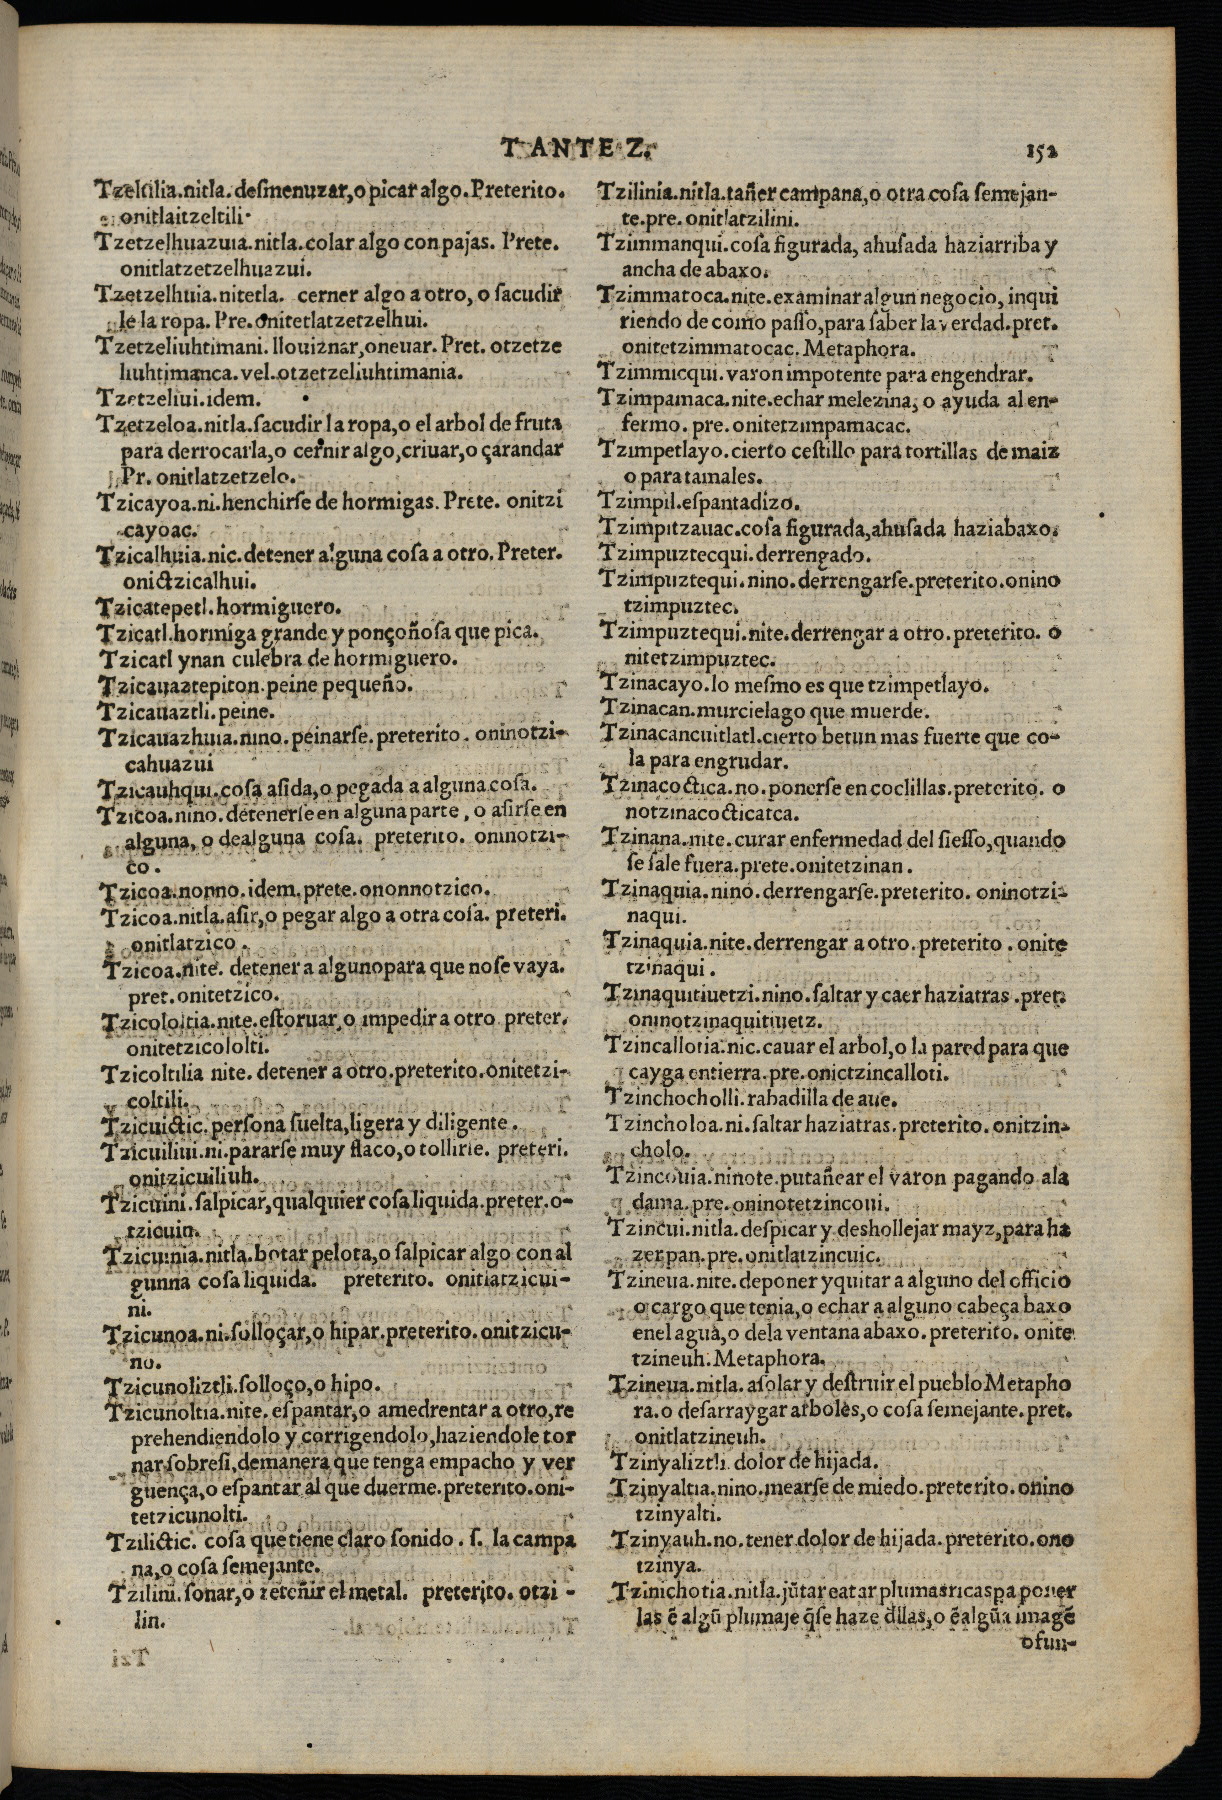 T ANTE Z.
152
Tzeltilia.nitla.desmenuzar,o picar algo.Preterito.
onitlaitzeltili.
Tzetzelhuazuia.nitla.colar algo con pajas. Prete.
onitlatzetzelhuazui.
Tzetzelhuia.nitetla. cerner algo a otro, o sacudir
le la ropa. Pre.onitetlatzetzelhui.
Tzetzeliuhtimani.llouiznar,oneuar. Pret. otzetze
liuhtimanca.vel.otzetzeliuhtimania.
Tzetzeliui.idem.
Tzetzeloa.nitla.sacudir la ropa,o el arbol de fruta
para derrocarla,o cernir algo,criuar,o çarandar
Pr. onitlatzetzelo.
Tzicayoa.ni.henchirse de hormigas. Prete. onitzi
cayoac.
Tzicalhuia.nic.detener alguna cosa a otro. Preter.
onictzicalhui.
Tzicatepetl.hormiguero.
Tzicatl.hormiga grande y ponçoñosa que pica.
Tzicatl ynan culebra de hormiguero.
Tzicauaztepiton.peine pequeño.
Tzicauaztli.peine.
Tzicauazhuia.nino.peinarse.preterito. oninotzi-
cahuazui
Tzicauhqui.cosa asida,o pegada a alguna cosa.
Tzicoa.nino.detenerse en alguna parte, o asirse en
alguna, o dealguna cosa. preterito. oninotzi-
co.
Tzicoa.nonno.idem.prete.ononnotzico.
Tzicoa.nitla.asir,o pegar algo a otra cosa. preteri.
onitlatzico.
Tzicoa.nite. detener a algunopara que nose vaya.
pret.onitetzico.
Tzicololtia.nite.estoruar,o impedir a otro preter.
onitetzicololti.
Tzicoltilia nite. detener a otro.preterito.onitetzi-
coltili.
Tzicuictic. persona suelta,ligera y diligente.
Tzicuiliui.ni.pararse muy flaco,o tollirse. preteri.
onitzicuiliuh.
Tzicuini.salpicar,qualquier cosa liquida.preter.o-
tzicuin.
Tzicuinia.nitla.botar pelota,o salpicar algo con al
gunna cosa liquida. preterito. onitlatzicui-
ni.
Tzicunoa.ni.solloçar,o hipar.preterito.onitzicu-
no.
Tzicunoliztli.solloço,o hipo.
Tzicunoltia.nite.espantar,o amedrentar a otro,re
prehendiendolo y corrigendolo,haziendole tor
nar sobresi,demanera que tenga empacho y ver
guença,o espantar al que duerme.preterito.oni-
tetzicunolti.
Tzilictic. cosa que tiene claro sonido. s. la campa
na,o cosa semejante.
Tzilini.sonar,o reteñir el metal. preterito. otzi -
lin.
Tzilinia.nitla.tañer campana,o otra cosa semejan-
te.pre.onitlatzilini.
Tzimmanqui.cosa figurada, ahusada haziarriba y
ancha de abaxo.
Tzimmatoca.nite.examinar algun negocio, inqui
riendo de como passo,para saber la verdad.pret.
onitetzimmatocac.Metaphora.
Tzimmicqui.varon impotente para engendrar.
Tzimpamaca.nite.echar melezina, o ayuda al en-
fermo. pre. onitetzimpamacac.
Tzimpetlayo.cierto cestillo para tortillas de maiz
o para tamales.
Tzimpil.espantadizo.
Tzimpitzauac.cosa figurada,ahusada haziabaxo.
Tzimpuztecqui.derrengado.
Tzimpuztequi.nino.derrengarse.preterito.onino
tzimpuztec.
Tzimpuztequi.nite.derrengar a otro.preterito. o
nitetzimpuztec.
Tzinacayo.lo mesmo es que tzimpetlayo.
Tzinacan.murcielago que muerde.
Tzinacancuitlatl.cierto betun mas fuerte que co-
la para engrudar.
Tzinacoctica.no.ponerse en coclillas.preterito. o
notzinacocticatca.
Tzinana.nite.curar enfermedad del siesso,quando
se sale fuera.prete.onitetzinan.
Tzinaquia.nino.derrengarse.preterito. oninotzi-
naqui.
Tzinaquia.nite.derrengar a otro.preterito. onite
tzinaqui.
Tzinaquitiuetzi.nino.saltar y caer haziatras.pret.
oninotzinaquitiuetz.
Tzincallotia.nic.cauar el arbol,o la pared para que
cayga entierra.pre.onictzincalloti.
Tzinchocholli.rabadilla de aue.
Tzincholoa.ni.saltar haziatras.preterito.onitzin-
cholo.
Tzincouia.ninote.putañear el varon pagando ala
dama.pre.oninotetzincoui.
Tzincui.nitla.despicar y deshollejar mayz,para ha
zer pan.pre.onitlatzincuic.
Tzineua.nite.deponer yquitar a alguno del officio
o cargo que tenia,o echar a alguno cabeça baxo
enel agua,o dela ventana abaxo.preterito. onite
tzineuh.Metaphora.
Tzineua.nitla. asolar y destruir el puebloMetapho
ra.o desarraygar arboles,o cosa semejante.pret.
onitlatzineuh.
Tzinyaliztli.dolor de hijada.
Tzinyaltia.nino.mearse de miedo.preterito.onino
tzinyalti.
Tzinyauh.no.tener dolor de hijada.preterito.ono
tzinya.
Tzinichotia.nitla.jũtar eatar plumasricas pa poner
las ẽ algũ plumaje q̃se haze dllas,o ẽalgũa imagẽ
ofun-